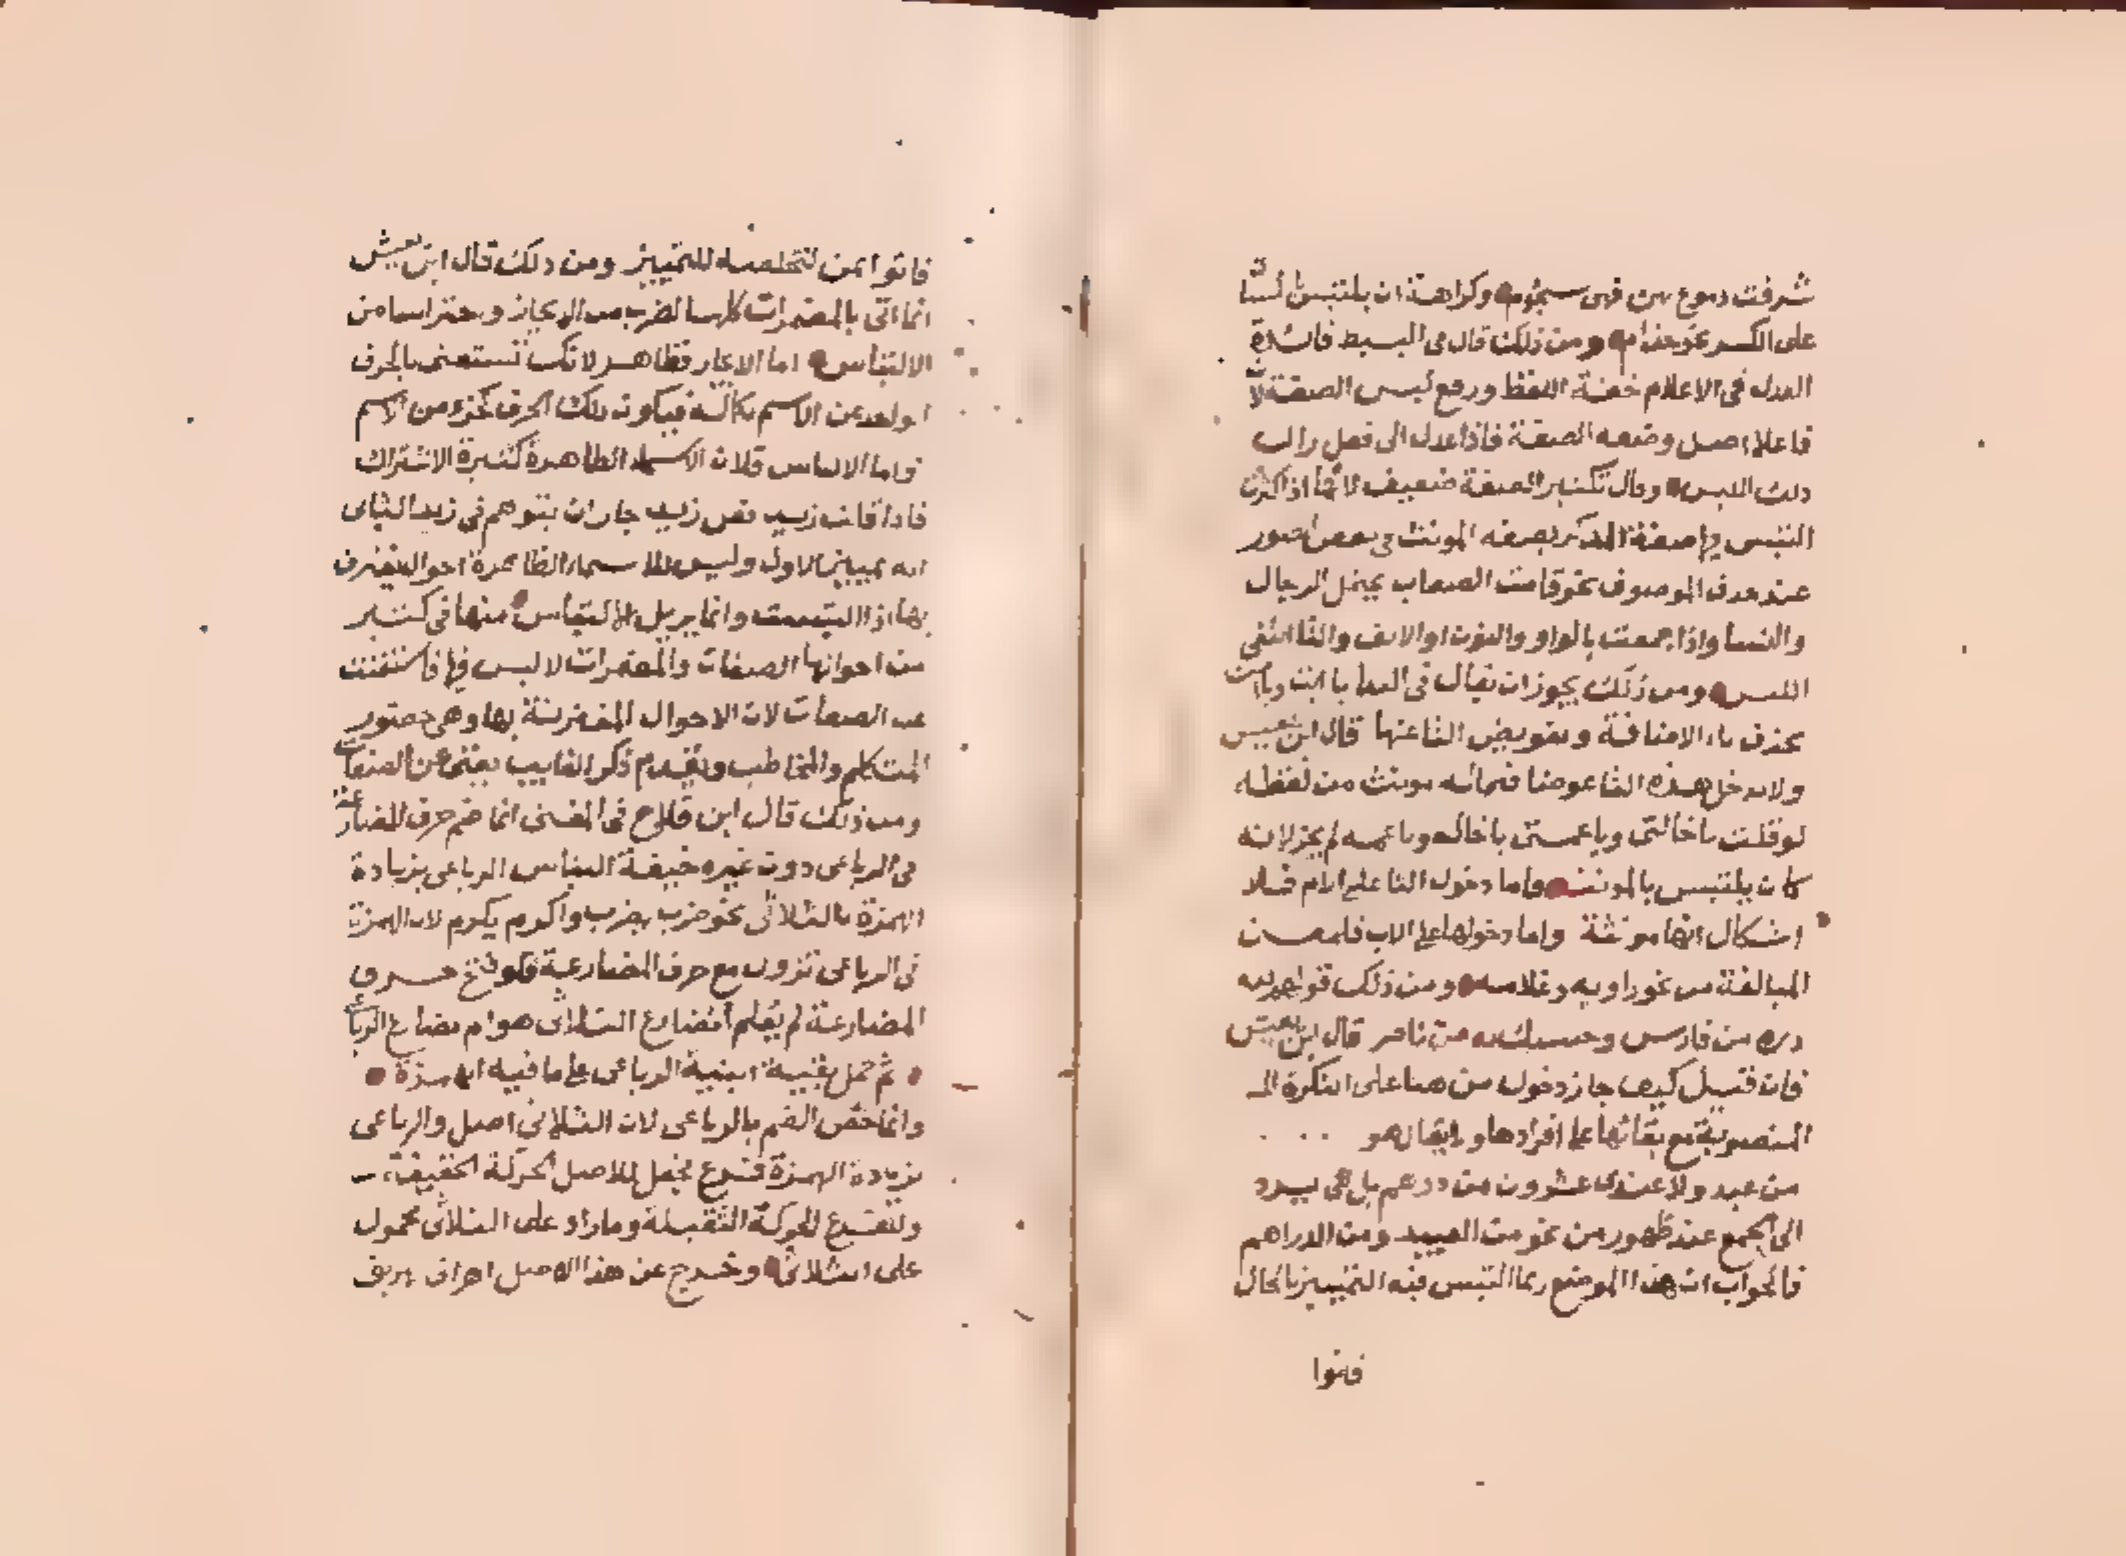 شرقت دموع بهن فهي سجوم وكراهة ان يلتبس
على الكسر نحو حذام ومن ذلك قال في البسيط فائدة
العدل في الاعلام خفة اللفظ ورفع لبس الصفة لان
فاعلا اصل وضعه الصفة فاذا عدل الى فعل زال
ذلك اللبس وقال تكسير الصفة ضعيف لانها اذا كسرت
التبس فيها صفة المذكر بصفة المونث في بعض الصور
عند حذف الموصوف نحو قامت الصعاب يحتمل الرجال
والنسا واذا جمعت بالواو والنون او الالف والتا انتفى
اللبس ومن ذلك يجوز ان يقال في الندا يا ابت ويا امت
بحذف ياء الاضافة وتعويض التا عنها قال ابن يعيش
ولا تدخل هذه التا عوضا فيما له مونث من لفظه
لو قلت يا خالتي ويا عمتي يا خاله ويا عمه لم يجز لانه
كان يلتبس بالمونث واما دخول التا على الام فلا
اشكال انها مونثة واما دخولها على الاب فلمعنى
المبالغة من نحو راويه وعلامه ومن ذلك قولهم لله
دره من فارس وحسبك به من ناصر قال ابن يعيش
فان قيل كيف جاز دخول من هنا على النكرة
المنصوبة مع بقائها على افرادها ولا يقال هو
من عبد ولا عندي عشرون من درهم بل يرد
الى الجمع عند ظهور من نحو من العبيد ومن الدراهم
فالجواب ان هذا الموضع ربما التبس فيه التمييز بالحال
فاتوا
فاتوا بمن لتخلصه للتمييز ومن ذلك قال ابن يعيش
انما اتى بالمضمرات كلها لضرب من الايجاز واحتراسا من
الالتباس اما الايجاز فظاهر لانك تستغني بالحرف
الواحد عن الاسم بكماله فيكون ذلك الحرف كجزء من الاسم
واما الالباس فلان الاسماء الظاهرة كثيرة الاشتراك
فاذا قلت زيد فعل زيد جاز ان يتوهم في زيد الثاني
انه غير الاول وليس للاسماء الظاهرة احوال تفترق
بها اذا التبست وانما يزيل الالتباس منها في كثير
من احوالها الصفات والمضمرات لا لبس فيها فاستغنت
عن الصفات لان الاحوال المقترنة بها وهي حضور
المتكلم والمخاطب وتقدم ذكر الغايب تغني عن الصفات
ومن ذلك قال ابن فلاح في المغني انما ضم حرف المضارعة
في الرباعي دون غيره خيفة التباس الرباعي بزيادة
الهمزة بالثلاثي نحو ضرب يضرب واكرم يكرم لان الهمزة
في الرباعي تزول مع حرف المضارعة فلو فتح حرف
المضارعة لم يعلم امضارع الثلاثي هو ام مضارع الرباعي
ثم حمل بقية ابنية الرباعي على ما فيه الهمزة
وانما خص الضم بالرباعي لان الثلاثي اصل والرباعي
بزيادة الهمزة فرع فجعل للاصل الحركة الخفيفة
وللفرع الحركة الثقيلة وما زاد على الثلاثي محمول
على الثلاثي وخرج عن هذا الاصل اهراق يهريق